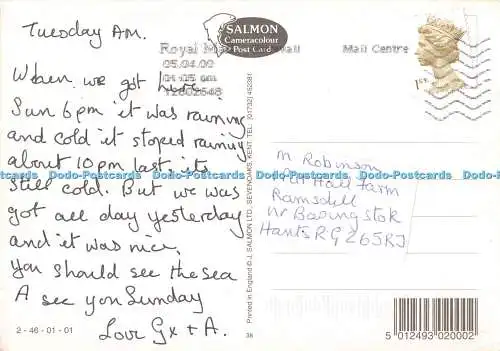 Tuesday Am.
When we got here
Sun 6pm it was raining
and cold it stoped raining
about 10pm last, its
still cold. But we was
got all day yesterday
and it was nice,
you should see the sea
A see you Sunday
Love Gx + A.
2-46-01-01
SALMON
Cameracolour
Post Card
Royal Mail
Mail Centre
05.04.00
01:05 am
12802648
1st
Printed in England © J. SALMON LTD., SEVENOAKS, KENT. TEL: (01732) 452381
36
M Robinson
Hall Farm
Ramsdell
Nr Basingstok
Hants RG265RJ
5 012493 020002
Dodo-Postcards Dodo-Postcards Dodo-Postcards Dodo-Postcards